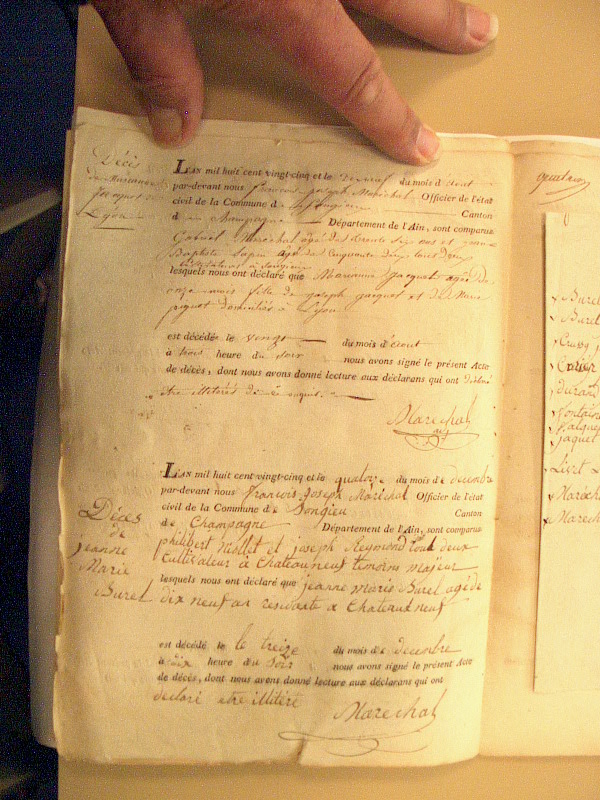 Décès
de Marianne
Jacquet
Lyon
LAN mil huit cent vingt-cinq et le du mois d'aout
par-devant nous françois joseph Maréchal Officier de l'état
civil de la Commune de Songieu Canton
de Champagne Département de l'Ain, sont comparus
Gabriel Marechal agé de trente six ans et
Baptiste agé de Cinquante deux tous deux
à Songieu
lesquels nous ont déclaré que Marianne Jacquet agée de
onze mois fille de joseph jacquet et de Marie
domiciliés à Lyon
est décédé le vingt du mois d'aout
à trois heure du soir nous avons signé le présent Acte
de décès, dont nous avons donné lecture aux déclarans qui ont déclaré
être illitérés de ce
Marechal
LAN mil huit cent vingt-cinq et le quatorze du mois de decembre
par-devant nous françois Joseph Maréchal Officier de l'état
civil de la Commune de Songieu Canton
de Champagne Département de l'Ain, sont comparus
philibert et joseph Reymond tout deux
Cultivateur à Chateauneuf temoins majeur
lesquels nous ont déclaré que jeanne marie Burel agé de
dix neuf an residante a Chateauneuf
Décès
de
jeanne
Marie
Burel
est décédé le le treize du mois de decembre
à six heure du Soir nous avons signé le présent Acte
de décès, dont nous avons donné lecture aux déclarans qui ont
declaré etre illitéré
Marechal
Burel
Burel
Durand
fontaine
Jaquet
Livet
Marechal
Marech